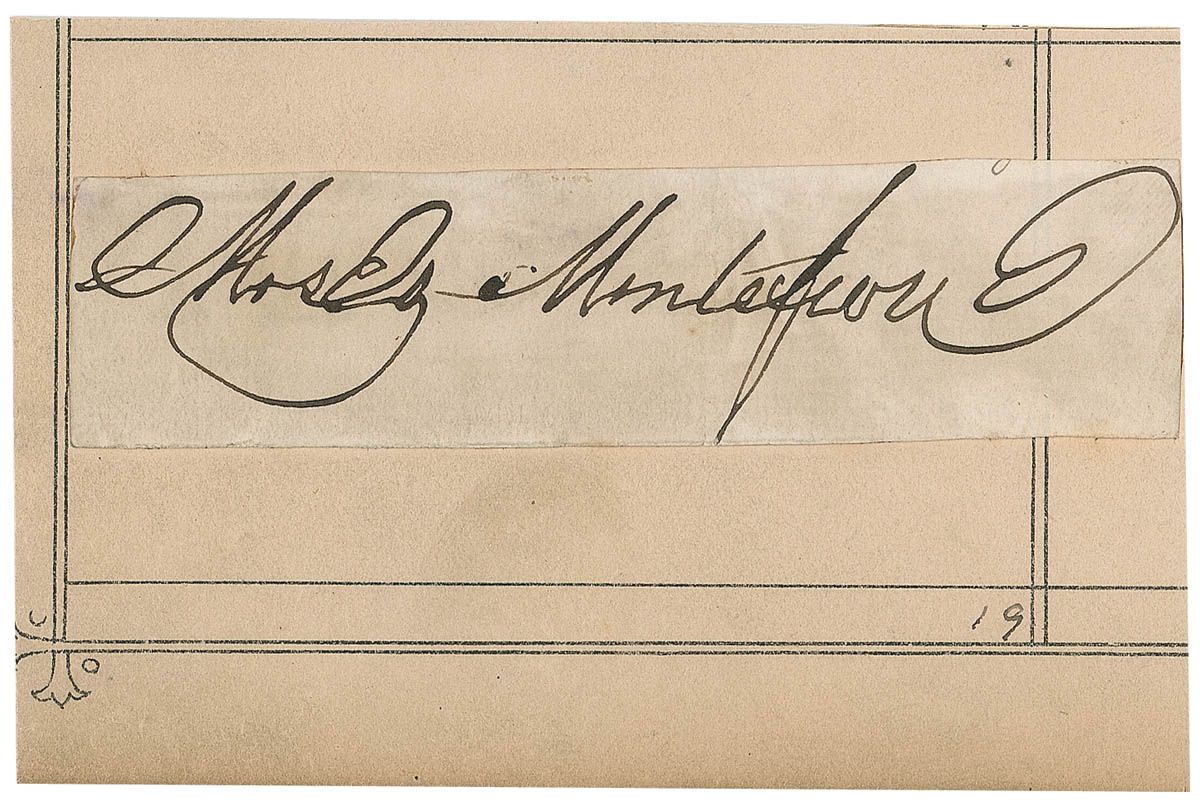 Moses Montefiore
19